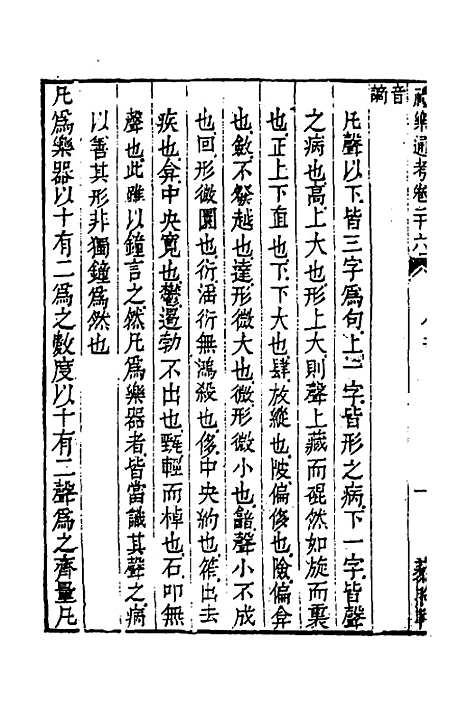 禮樂通考卷二十六
音
謫
凡聲以下皆三字爲句上二字皆形之病下一字皆聲
之病也高上大也形上大則聲上藏而硍然如旋而裏
也正上下直也下下大也肆放縱也陂偏侈也險偏弇
也斂不發越也達形微大也微形微小也韽聲小不成
也回形微圜也衍淫衍無鴻殺也侈中央約也筰出去
疾也弇中央寬也鬱遏勃不出也甄輕而棹也石叩無
聲也此雖以鐘言之然凡爲樂器者皆當識其聲之病
以善其形非獨鐘爲然也
凡爲樂器以十有二爲之數度以十有二聲爲之齊量凡